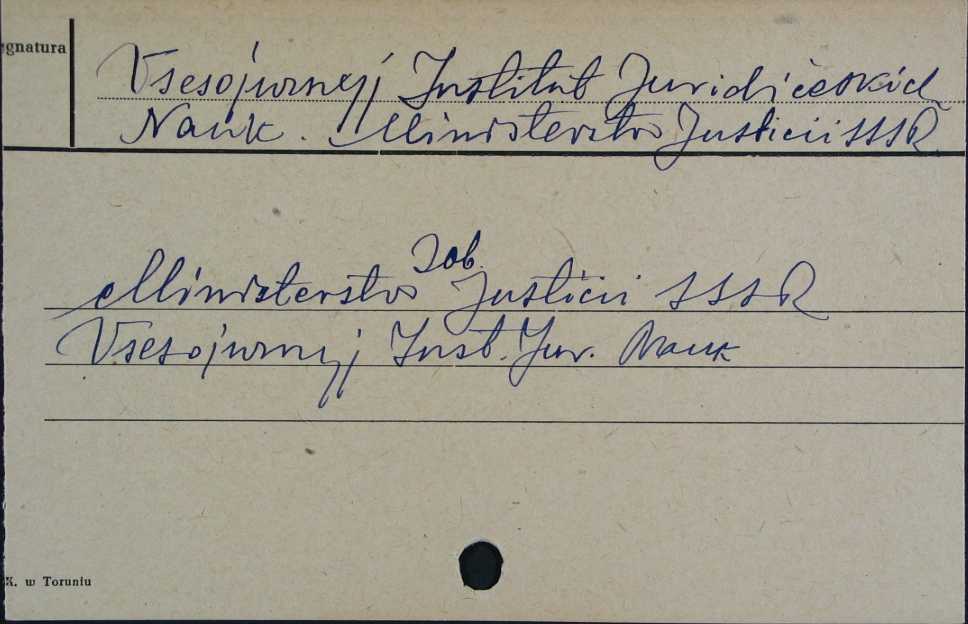 gnatura
Vsesojuznyj Institut Juridičeskich
Nauk. Ministerstvo Justicii SSSR
Zob.
Ministerstvo Justicii SSSR
Vsesojuznyj Inst. Jur. Nauk
K. w Toruniu